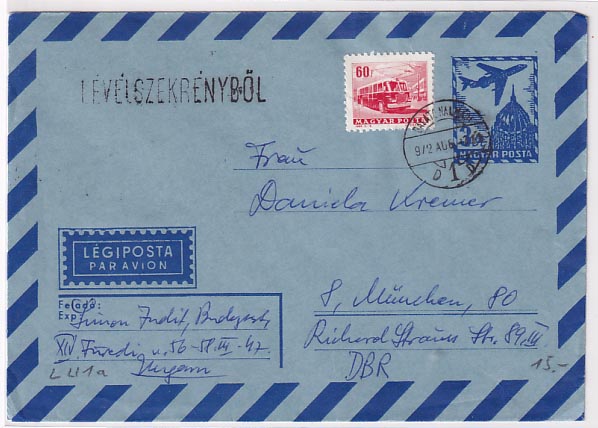 LEVÉLSZEKRÉNYBŐL
60f
MAGYAR POSTA
MAGYAR POSTA
972 AUG
D 1
Frau
Daniela Kremer
LÉGIPOSTA
PAR AVION
Feladó:
Exp
Simon Judit, Budapest,
XIV. Füredi u. 56-58. III. 47.
Ungarn
8, München, 80
Richard Strauss Str. 89. III
DBR
L U1a
15.-